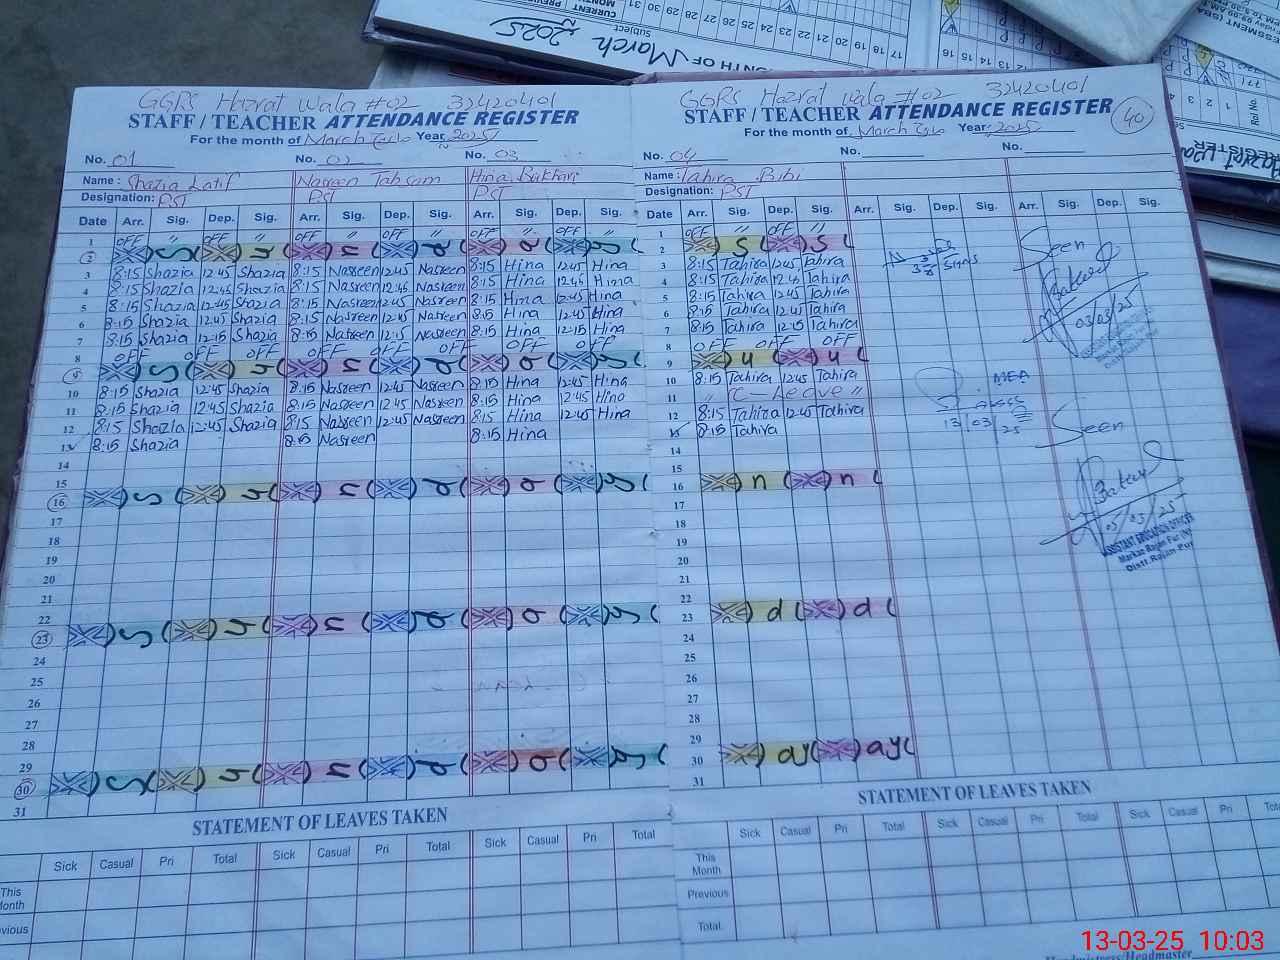 GGPS Hazrat Wala #02 32420401
STAFF / TEACHER ATTENDANCE REGISTER
For the month of March Year 2025
No. 01 No. 02 No. 03
Name : Shazia Latif Nasreen Tabsam Hina Bukhari
Designation: PST PST PST
Date Arr. Sig. Dep. Sig. Arr. Sig. Dep. Sig. Arr. Sig. Dep. Sig.
1 OFF " OFF " OFF " OFF " OFF " OFF "
2
3 8:15 Shazia 12:45 Shazia 8:15 Nasreen 12:45 Nasreen 8:15 Hina 12:45 Hina
4 8:15 Shazia 12:45 Shazia 8:15 Nasreen 12:45 Nasreen 8:15 Hina 12:45 Hina
5 8:15 Shazia 12:45 Shazia 8:15 Nasreen 12:45 Nasreen 8:15 Hina 12:45 Hina
6 8:15 Shazia 12:45 Shazia 8:15 Nasreen 12:45 Nasreen 8:15 Hina 12:45 Hina
7 8:15 Shazia 12:15 Shazia 8:15 Nasreen 12:15 Nasreen 8:15 Hina 12:15 Hina
8 OFF OFF OFF OFF OFF OFF OFF OFF OFF
9
10 8:15 Shazia 12:45 Shazia 8:15 Nasreen 12:45 Nasreen 8:15 Hina 12:45 Hina
11 8:15 Shazia 12:45 Shazia 8:15 Nasreen 12:45 Nasreen 8:15 Hina 12:45 Hina
12 8:15 Shazia 12:45 Shazia 8:15 Nasreen 12:45 Nasreen 8:15 Hina 12:45 Hina
13 8:15 Shazia 8:15 Nasreen 8:15 Hina
14
15
16
17
18
19
20
21
22
23
24
25
26
27
28
29
30
31
STATEMENT OF LEAVES TAKEN
Sick Casual Pri Total Sick Casual Pri Total Sick Casual Pri Total
This Month
vious
GGPS Hazrat Wala #02 32420401
STAFF / TEACHER ATTENDANCE REGISTER 40
For the month of March Year 2025
No. 04 No. No.
Name : Tahira Bibi
Designation: PST
Date Arr. Sig. Dep. Sig. Arr. Sig. Dep. Sig. Arr. Sig. Dep. Sig.
1 OFF " OFF "
2 S S
3 8:15 Tahira 12:45 Tahira
4 8:15 Tahira 12:45 Tahira
5 8:15 Tahira 12:45 Tahira
6 8:15 Tahira 12:45 Tahira
7 8:15 Tahira 12:15 Tahira
8 OFF OFF OFF
9 u u
10 8:15 Tahira 12:45 Tahira
11 " C-Leave "
12 8:15 Tahira 12:45 Tahira
13 8:15 Tahira
14
15
16 n n
17
18
19
20
21
22
23 d d
24
25
26
27
28
29
30 ay ay
31
Seen
03/03/25
MEA
13 03 25
Seen
ASSISTANT EDUCATION OFFICER
Distt. Rajan Pur
STATEMENT OF LEAVES TAKEN
Sick Casual Pri Total Sick Casual Pri Total Sick Casual Pri
This Month
Previous
Total
Headmistress/Headmaster
March 2025
Subject
13-03-25 10:03